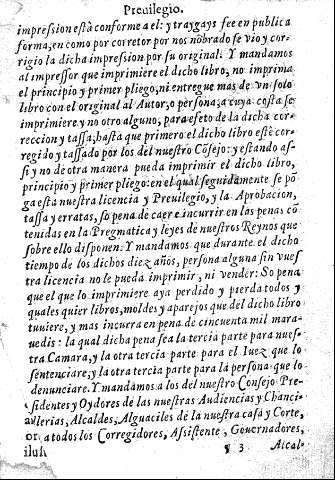 Preuilegio.
impression està conforme a el: y traygays fee en publica
forma, en como por corretor por nos nõbrado se vio y cor-
rigio la dicha impression por su original. Y mandamos
al impressor que imprimiere el dicho libro, no imprima
el principio y primer pliego, ni entregue mas de vn solo
libro con el original al Autor, o persona, a cuya costa se
imprimiere y no otro alguno, para efeto de la dicha cor-
reccion y tassa, hasta que primero el dicho libro estè cor-
regido y tassado por los del nuestro Cõsejo: y estando as-
si y no de otra manera pueda imprimir el dicho libro,
principio y primer pliego: en el qual seguidamente se põ
ga esta nuestra licencia y Preuilegio, y la Aprobacion,
tassa y erratas, so pena de caer e incurrir en las penas cõ
tenidas en la Pregmatica y leyes de nuestros Reynos que
sobre ello disponen. Y mandamos que durante el dicho
tiempo de los dichos diez años, persona alguna sin vues
tra licencia no le pueda imprimir, ni vender: So pena
que el que lo imprimiere aya perdido y pierda todos y
quales quier libros, moldes y aparejos que del dicho libro
tuuiere, y mas incurra en pena de cincuenta mil mara-
uedis: la qual dicha pena sea la tercia parte para nues-
tra Camara, y la otra tercia parte para el Iuez que lo
sentenciare, y la otra tercia parte para la persona que lo
denunciare. Y mandamos a los del nuestro Consejo Pre-
sidentes y Oydores de las nuestras Audiencias y Chanci-
llerias, Alcaldes, Alguaciles de la nuestra casa y Corte,
a todos los Corregidores, Assistente, Gouernadores,
¶ 3 Alcal-